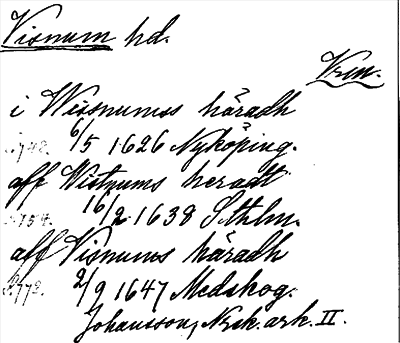 Visnum hd.
Vrm.
i Wissnumss häradh
s.748. 6/5 1626 Nyköping.
aff Wistnums heradt
s.754. 16/2 1638 Sthlm.
aff Visnums häradh
s.772. 2/9 1647 Medskog.
Johansson, Nyk. ark. II.